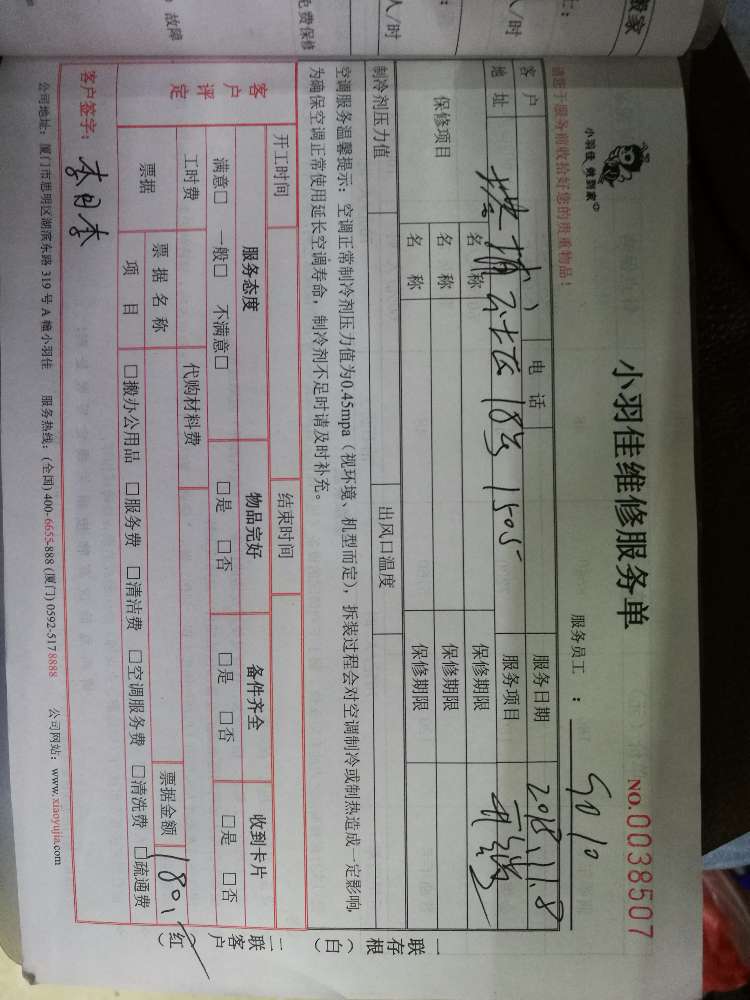 搬家
人/时
人/时
电费保修
故障
小羽佳 就到家
小羽佳维修服务单
NO.0038507
请您于服务前收拾好您的贵重物品!
服务员工 : 5010
客户
电话
服务日期
2018.11.8
地址
18号1505
服务项目
保修项目
名称
保修期限
名称
保修期限
名称
保修期限
制冷剂压力值
出风口温度
空调服务温馨提示:空调正常制冷剂压力值为0.45mpa(视环境、机型而定),拆装过程会对空调制冷或制热造成一定影响
为确保空调正常使用延长空调寿命,制冷剂不足时请及时补充。
开工时间
结束时间
客户评定
服务态度
物品完好
备件齐全
收到卡片
满意□ 一般□ 不满意□
□是 □否
□是 □否
□是 □否
工时费
代购材料费
票据
票据名称
票据金额
180
项目
□搬办公用品 □服务费 □清洁费 □空调服务费 □清洗费 □疏通费
客户签字:
一存根(白)
二客户(红)
联
联
公司地址:厦门市思明区湖滨东路 319 号 A 幢小羽佳 服务热线:(全国)400-6655-888 (厦门)0592-5178888 公司网站:www.xiaoyujia.com